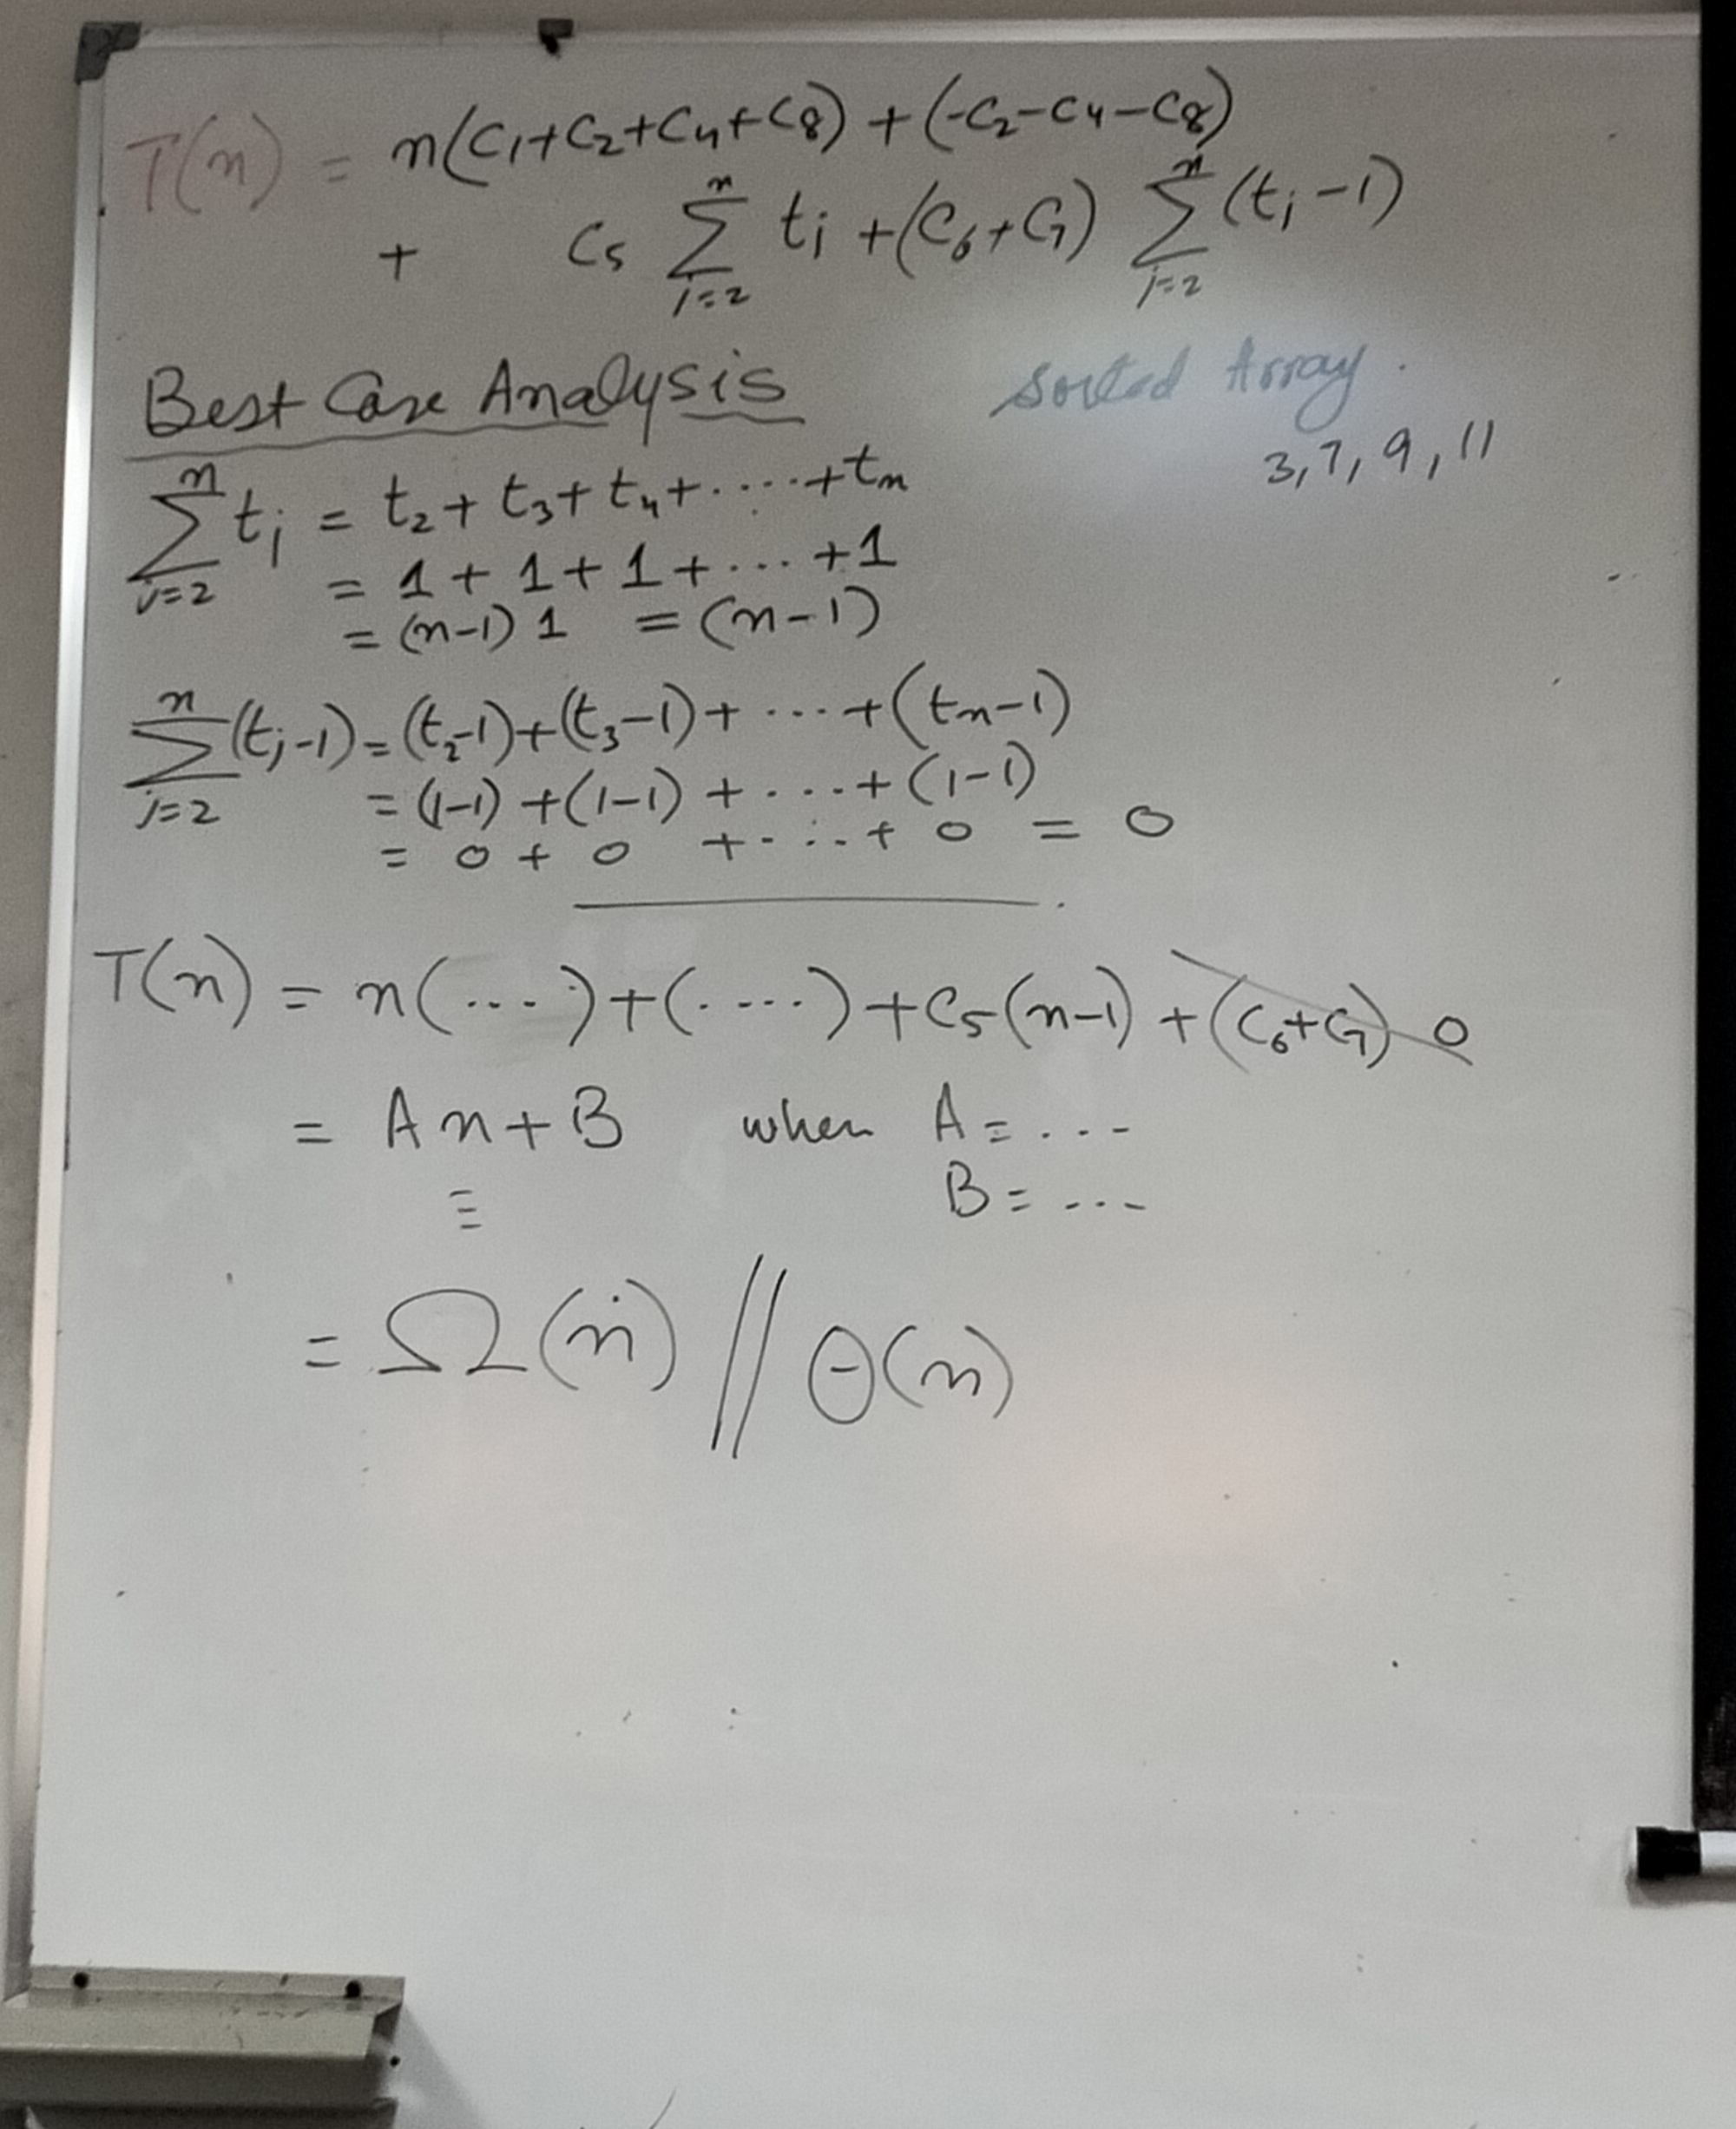 T(n) = n(C₁+C₂+C₄+C₈) + (-C₂-C₄-C₈)
+ C₅ ∑ⁿⱼ₌₂ tⱼ + (C₆+C₇) ∑ⁿⱼ₌₂ (tⱼ-1)
Best Case Analysis
Sorted Array.
3, 7, 9, 11
∑ⁿⱼ₌₂ tⱼ = t₂ + t₃ + t₄ + ..... + tₙ
= 1 + 1 + 1 + ... + 1
= (n-1) 1 = (n-1)
∑ⁿⱼ₌₂ (tⱼ-1) = (t₂-1) + (t₃-1) + .... + (tₙ-1)
= (1-1) + (1-1) + .... + (1-1)
= 0 + 0 + .... + 0 = 0
T(n) = n(...) + (....) + C₅(n-1) + (C₆+C₇) 0
= An + B when A = ...
B = ...
= Ω(n) // Θ(n)